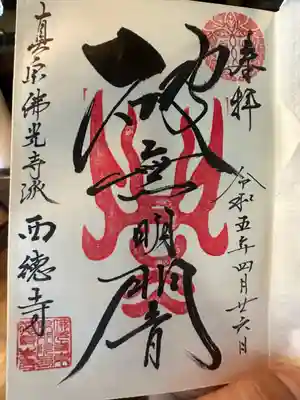 奉拝
令和五年四月廿六日
破無明闇
真宗佛光寺派 西德寺